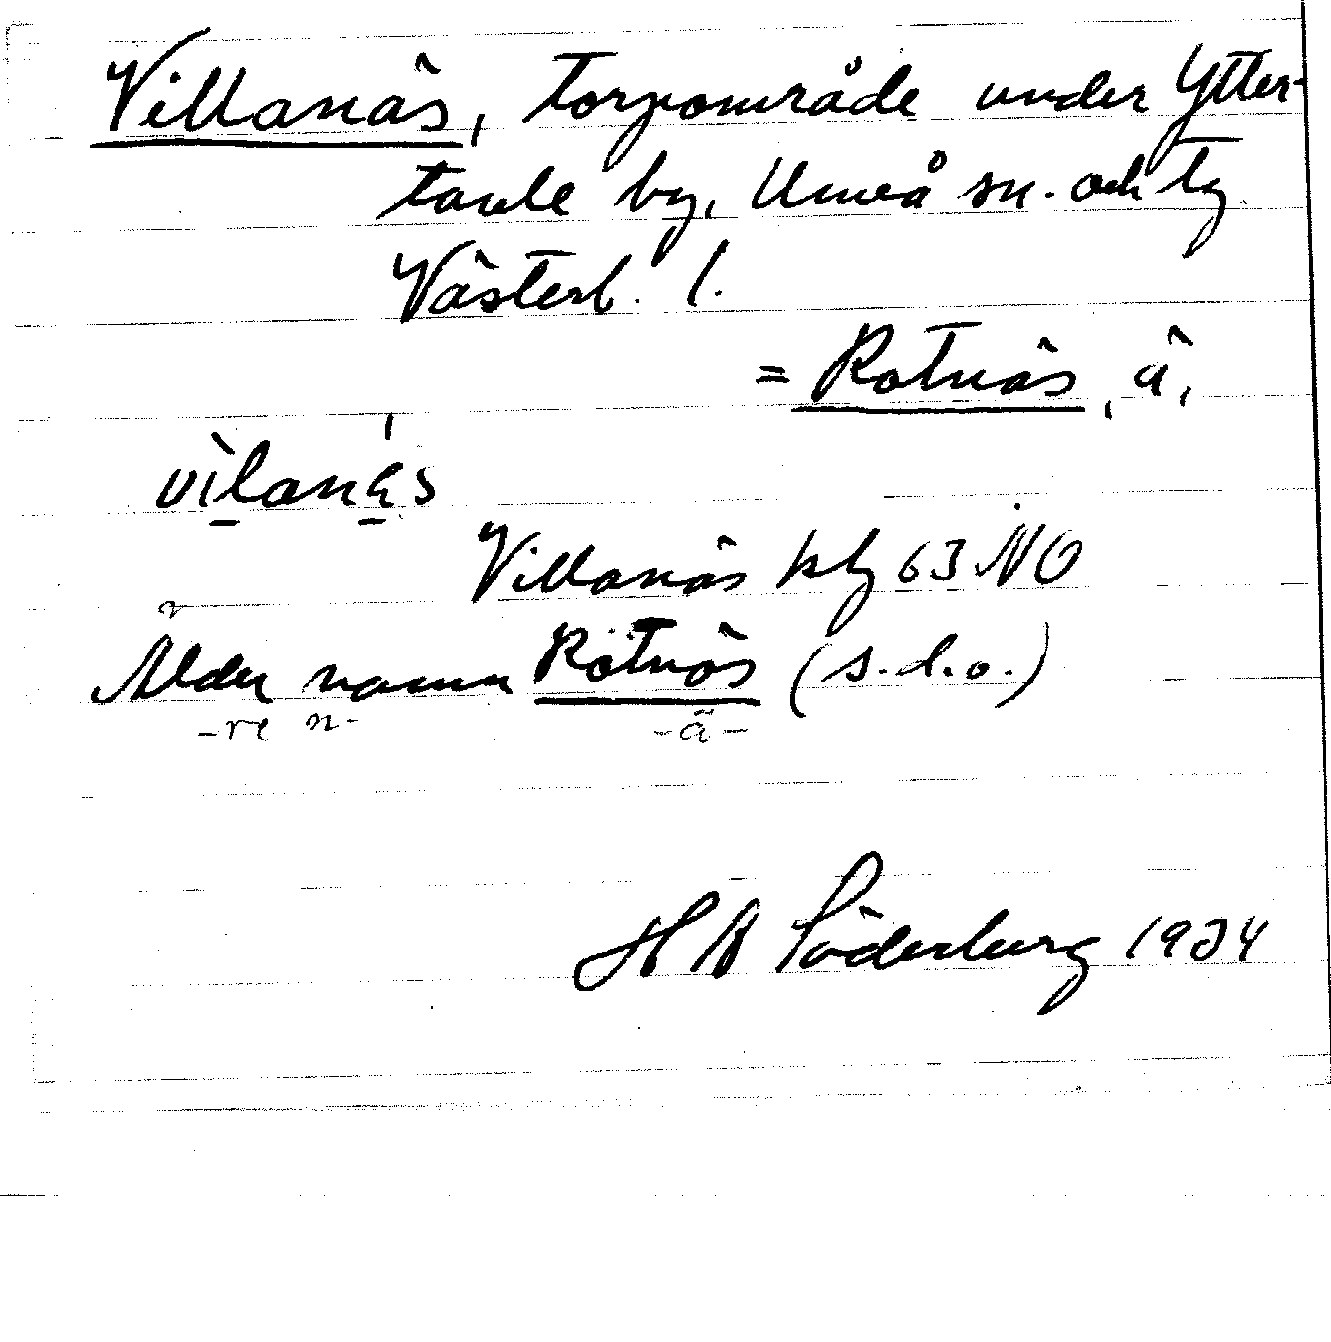 Villanäs, torpområde under Ytter-
tavle by, Umeå sn. och tg
Västerb. l.
= Rotnäs, ä,
vìlanä́s
Villanäs kbg 63 NO
Äldre namn Rotnäs (s.d.o.)
-re n- -ä-
H B Söderberg 1934